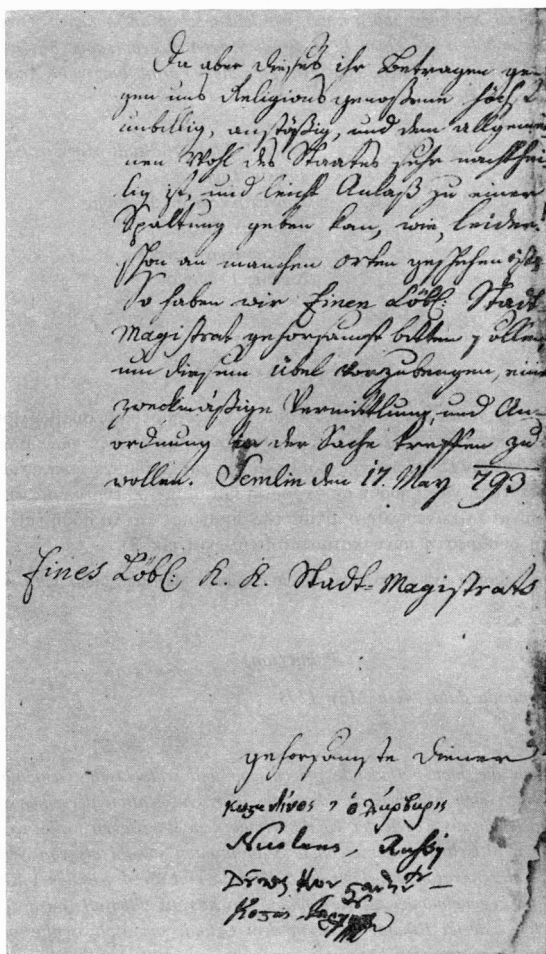 Da aber dieses ihr Betragen ge-
gen uns Religionsgenoßene höchst
unbillig, anstößig, und dem allgemei
nen Wohl des Staates sehr nachthei
lig ist, und leicht Anlaß zu einer
Spaltung geben kan, wie, leider!
schon an manchen Orten geschehen ist.
So haben wir Einen Löbl: Stadt
Magistrat gehorsamst bitten sollen,
um diesem übel vorzubeugen, eine
zweckmäßige Vermittlung und An-
ordnung in der Sache treffen zu
wollen. Semlin den 17. May 793
Eines Löbl: K. K. Stadt-Magistrats
gehorsamste Diener
Nicolaus